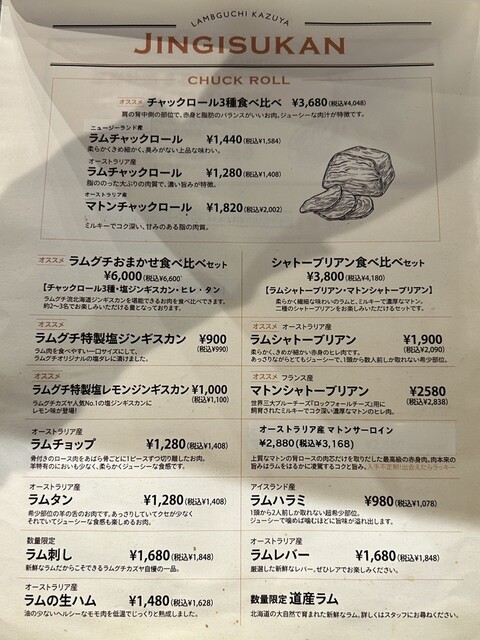 LAMBGUCHI KAZUYA
JINGISUKAN
CHUCK ROLL
オススメ チャックロール3種食べ比べ ¥3,680(税込¥4,048)
肩の背中側の部位で、赤身と脂肪のバランスがいいお肉。ジューシーな肉汁が特徴です。
ニュージーランド産
ラムチャックロール ¥1,440(税込¥1,584)
柔らかくきめ細かく、臭みがない上品な味わい。
オーストラリア産
ラムチャックロール ¥1,280(税込¥1,408)
脂ののった大ぶりの肉質で、濃い旨みが特徴。
オーストラリア産
マトンチャックロール ¥1,820(税込¥2,002)
ミルキーでコク深い、甘みのある脂の肉質。
オススメ ラムグチおまかせ食べ比べセット
¥6,000(税込¥6,600)
【チャックロール3種・塩ジンギスカン・ヒレ・タン】
ラムグチ流北海道ジンギスカンを堪能できるお肉を食べ比べできます。
約2〜3名でお楽しみいただける量となっております。
シャトーブリアン食べ比べセット
¥3,800(税込¥4,180)
【ラムシャトーブリアン・マトンシャトーブリアン】
柔らかく繊細な味わいのラムと、ミルキーで濃厚なマトン。
二種のシャトーブリアンをお楽しみいただけるセットです。
オススメ
ラムグチ特製塩ジンギスカン ¥900
(税込¥990)
ラム肉を食べやすい一口サイズにして、
ラムグチオリジナルの塩ダレに漬けました。
オススメ オーストラリア産
ラムシャトーブリアン ¥1,900
(税込¥2,090)
柔らかく、きめが細かい赤身のヒレ肉です。
あっさりながらとてもジューシーで、1頭から数人前しか取れない希少部位。
オススメ
ラムグチ特製塩レモンジンギスカン ¥1,000
(税込¥1,100)
ラムグチカズヤ人気No.1の塩ジンギスカンに
レモン味が登場!
オススメ フランス産
マトンシャトーブリアン ¥2580
(税込¥2,838)
世界三大ブルーチーズ「ロックフォールチーズ」用に
飼育されたミルキーでコク深い濃厚なマトンのヒレ肉。
オーストラリア産
ラムチョップ ¥1,280(税込¥1,408)
骨付きのロース肉をあばら骨ごとに1ピースずつ切り離したお肉。
羊特有のにおいも少なく、柔らかくジューシーな食感です。
オーストラリア産 マトンサーロイン
¥2,880(税込¥3,168)
上質なマトンの背ロースの肉芯だけを切り取りだした最高級の赤身肉。肉本来の
旨みはラムをはるかに凌駕するコクと旨み。入手不定期!出会えたらラッキー
オーストラリア産
ラムタン ¥1,280(税込¥1,408)
希少部位の羊の舌のお肉です。あっさりしていてクセが少なく
それでいてジューシーな食感も楽しめるお肉。
アイスランド産
ラムハラミ ¥980(税込¥1,078)
1頭から2人前しか取れない超希少部位。
ジューシーで噛めば噛むほどに旨味が溢れ出します。
数量限定
ラム刺し ¥1,680(税込¥1,848)
新鮮なラムだからこそできるラムグチカズヤ自慢の一品。
オーストラリア産
ラムレバー ¥1,680(税込¥1,848)
厳選した新鮮なレバー。ぜひレアでお楽しみください。
オーストラリア産
ラムの生ハム ¥1,480(税込¥1,628)
油の少ないヘルシーなモモ肉を低温でじっくりと熟成しました。
数量限定 道産ラム
北海道の大自然で育まれた新鮮なラム。詳しくはスタッフにお尋ねください。